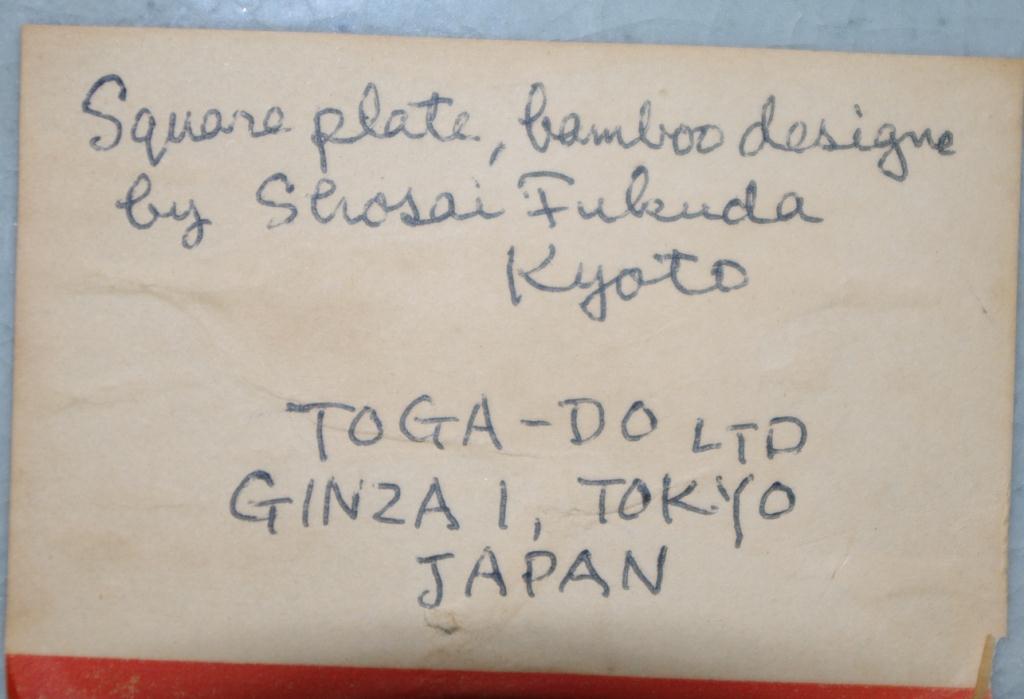 Square plate, bamboo designe
by Shosai Fukuda
Kyoto
TOGA-DO LTD
GINZA 1, TOKYO
JAPAN